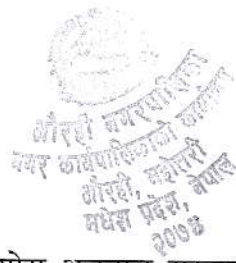 औरही नगरपालिका
नगर कार्यपालिकाको कार्यालय
औरही, महोत्तरी
मधेश प्रदेश, नेपाल
२०७३